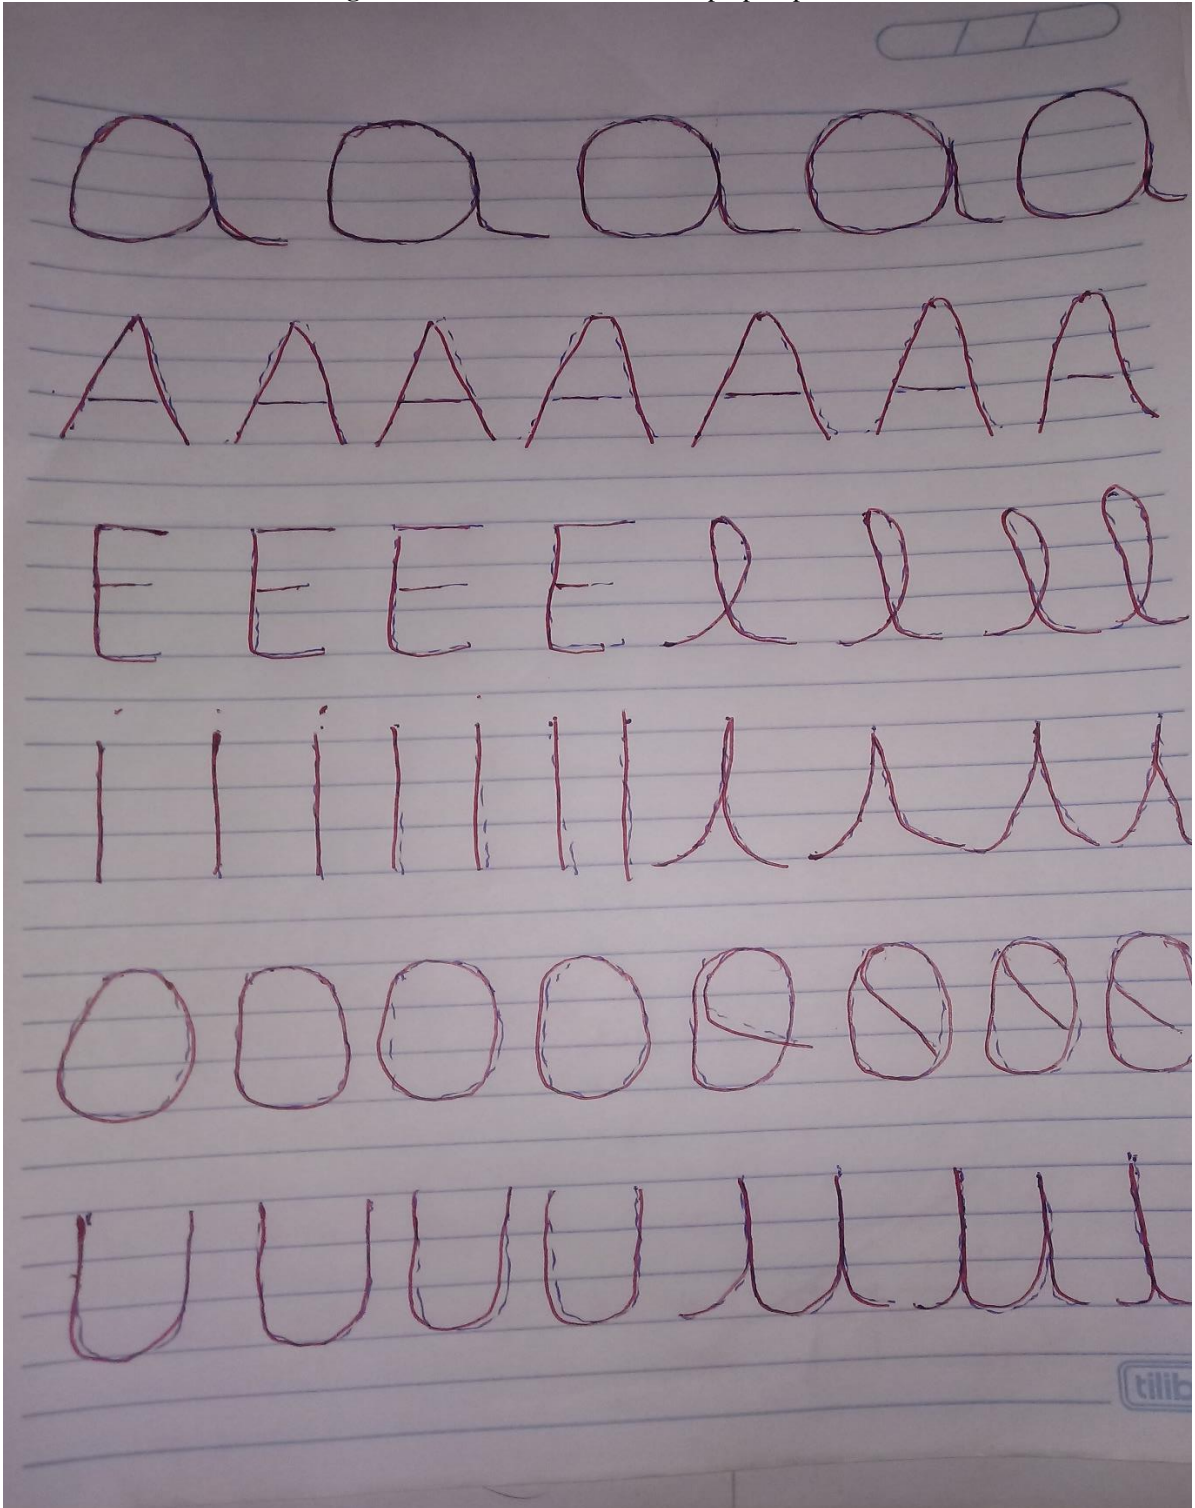 a a a a a
A A A A A A A
E E E E e e e e
i i i i i i i i i i i
O O O O o o o o
U U U U u u u
tilib